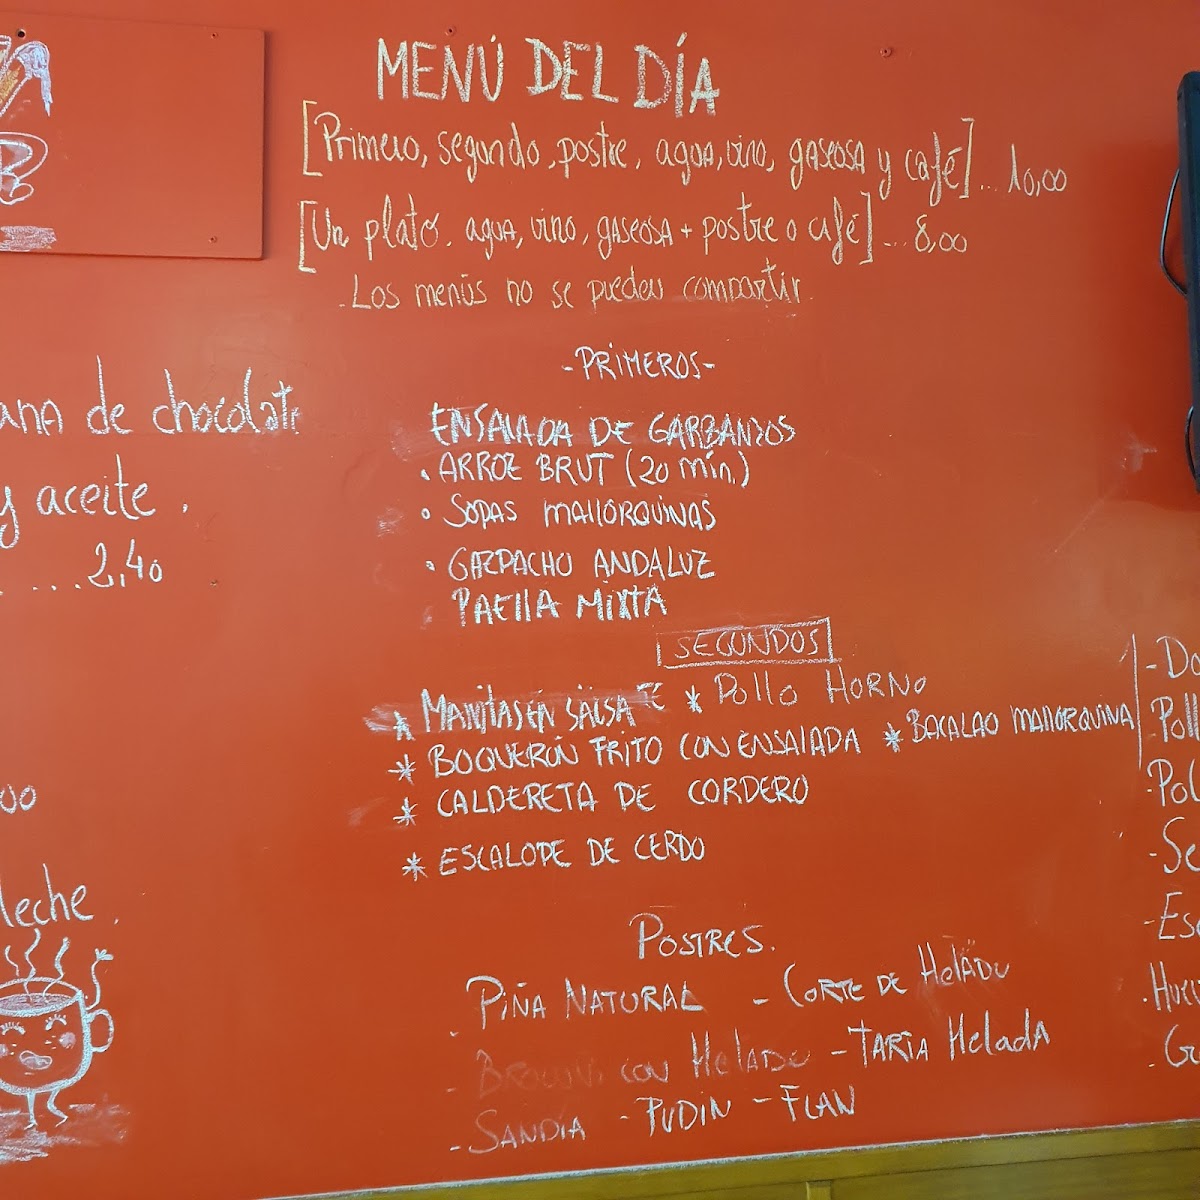 MENÚ DEL DÍA
[Primero, segundo, postre, agua, vino, gaseosa y café]... 10,00
[Un plato, agua, vino, gaseosa + postre o café]... 8,00
Los menús no se pueden compartir.
-PRIMEROS-
ENSALADA DE GARBANZOS
• ARROZ BRUT (20 min.)
• SOPAS MALLORQUINAS
• GAZPACHO ANDALUZ
PAELLA MIXTA
SEGUNDOS
* MANITAS EN SALSA * POLLO HORNO
* BOQUERON FRITO CON ENSALADA * BACALAO MALLORQUINA
* CALDERETA DE CORDERO
* ESCALOPE DE CERDO
POSTRES.
- PIÑA NATURAL - CORTE DE HELADO
- BROWNI CON HELADO - TARTA HELADA
- SANDÍA - PUDIN - FLAN
de chocolate
y aceite.
....2,40
leche.